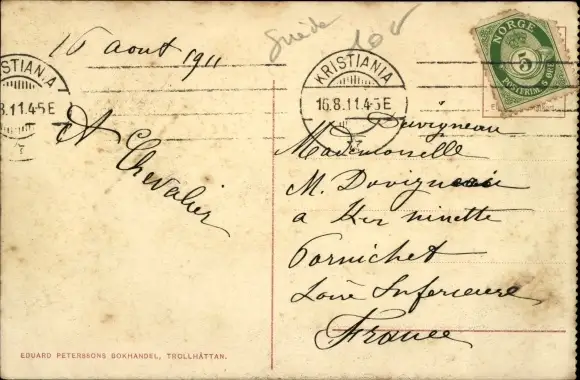 16 aout 1911
Suède
10
KRISTIANIA
8.11.4-5 E
KRISTIANIA
16.8.11.4-5 E
NORGE
5
POSTFRIM. 5 ØRE
A Chevalier
Duvigneau
Mademoiselle
M. Duvigneau
a Ker ninette
Pornichet
Loire Inferieure
France
EDUARD PETERSSONS BOKHANDEL, TROLLHÄTTAN.